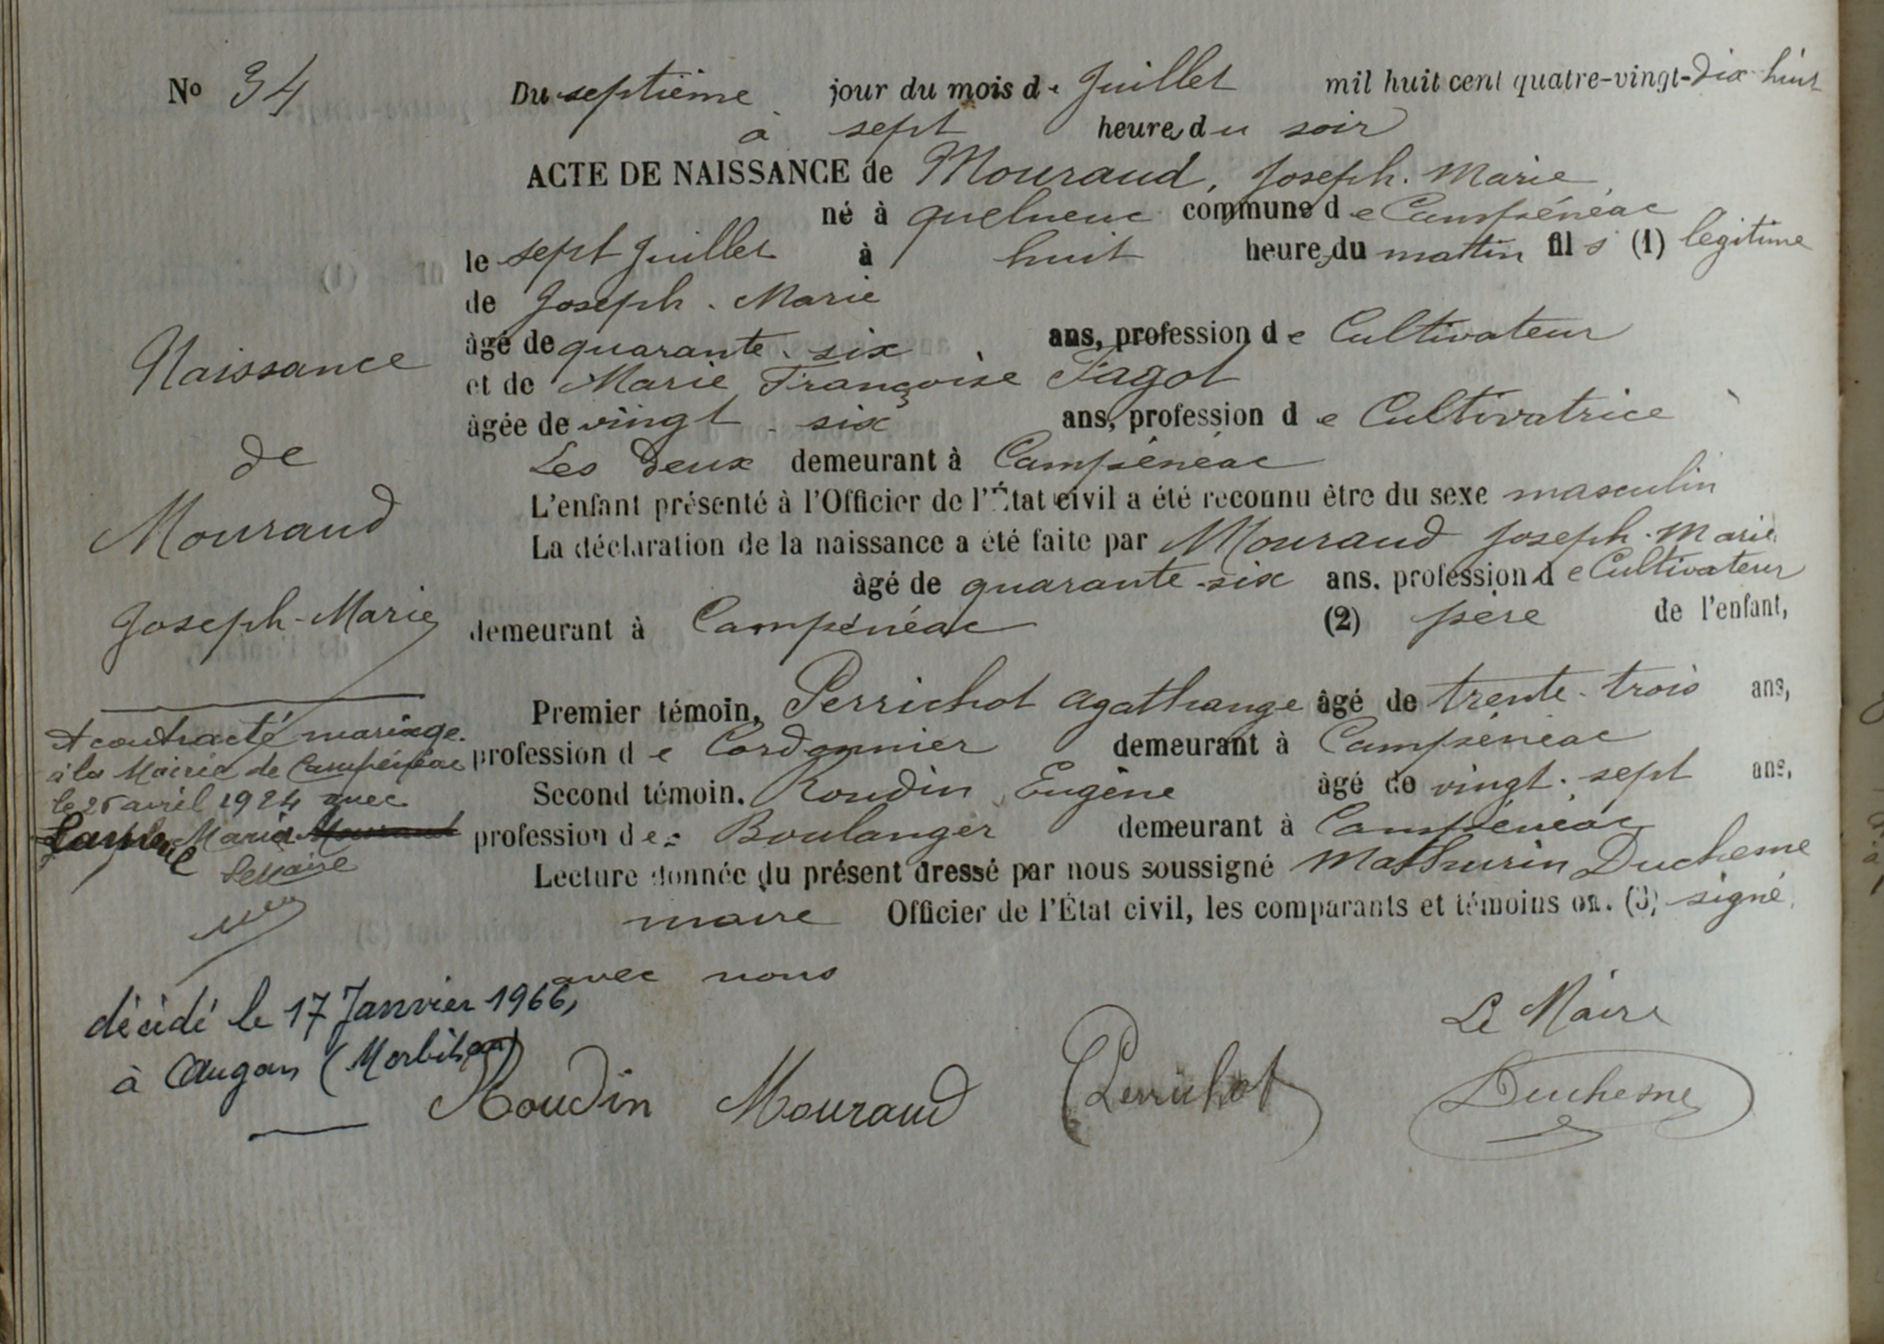 No 34
Du septième jour du mois de Juillet mil huit cent quatre-vingt-dix huit
à sept heure du soir
ACTE DE NAISSANCE de Mouraud, Joseph. Marie
né à quelneuc commune de Campénéac
le sept Juillet à huit heures du matin fils (1) légitime
de Joseph. Marie
âgé de quarante. six ans, profession de Cultivateur
et de Marie Françoise Fagot
âgée de vingt. six ans, profession de Cultivatrice
Les deux demeurant à Campénéac
L'enfant présenté à l'Officier de l'État civil a été reconnu être du sexe masculin
La déclaration de la naissance a été faite par Mouraud Joseph. Marie
âgé de quarante-six ans. profession de Cultivateur
demeurant à Campénéac (2) père de l'enfant,
Premier témoin, Perrichot Agathange âgé de trente-trois ans,
profession de Cordonnier demeurant à Campénéac
Second témoin. Roudin Eugène âgé de vingt. sept ans,
profession de Boulanger demeurant à Campénéac
Lecture donnée du présent dressé par nous soussigné Mathurin Duchesne
maire Officier de l'État civil, les comparants et témoins on. (3) signé
avec nous
Naissance
de
Mouraud
Joseph-Marie
A contracté mariage
à la Mairie de Campénéac
le 26 avril 1924 avec
Marie
Le Maire
décédé le 17 Janvier 1966,
à Augan (Morbihan)
Le Maire
Roudin Mouraud Perrichot Duchesne